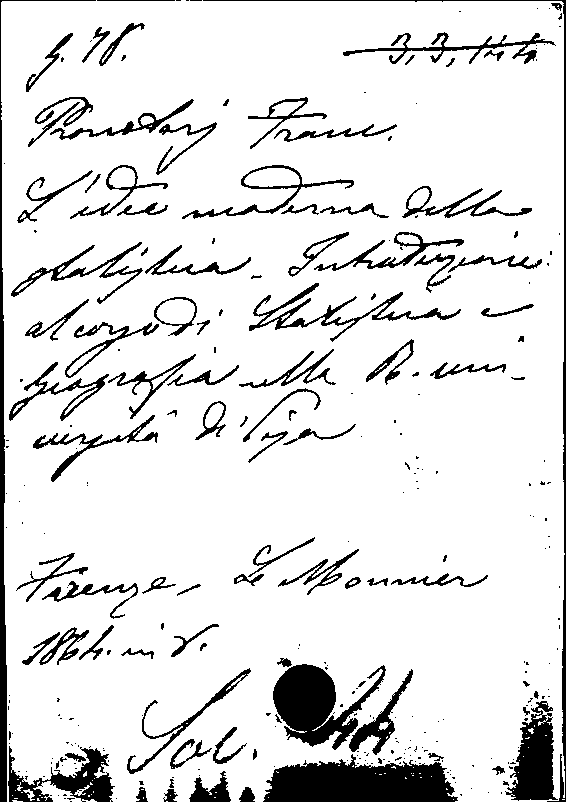 G. 78. 3, 3, 14 4
Protonotarj Franc.
L'idea moderna della
statistica - Introduzione
al corso di Statistica e
Geografia nella R. uni-
versità di Pisa
Firenze, Le Monnier
1864. in 8.
Soc. 44